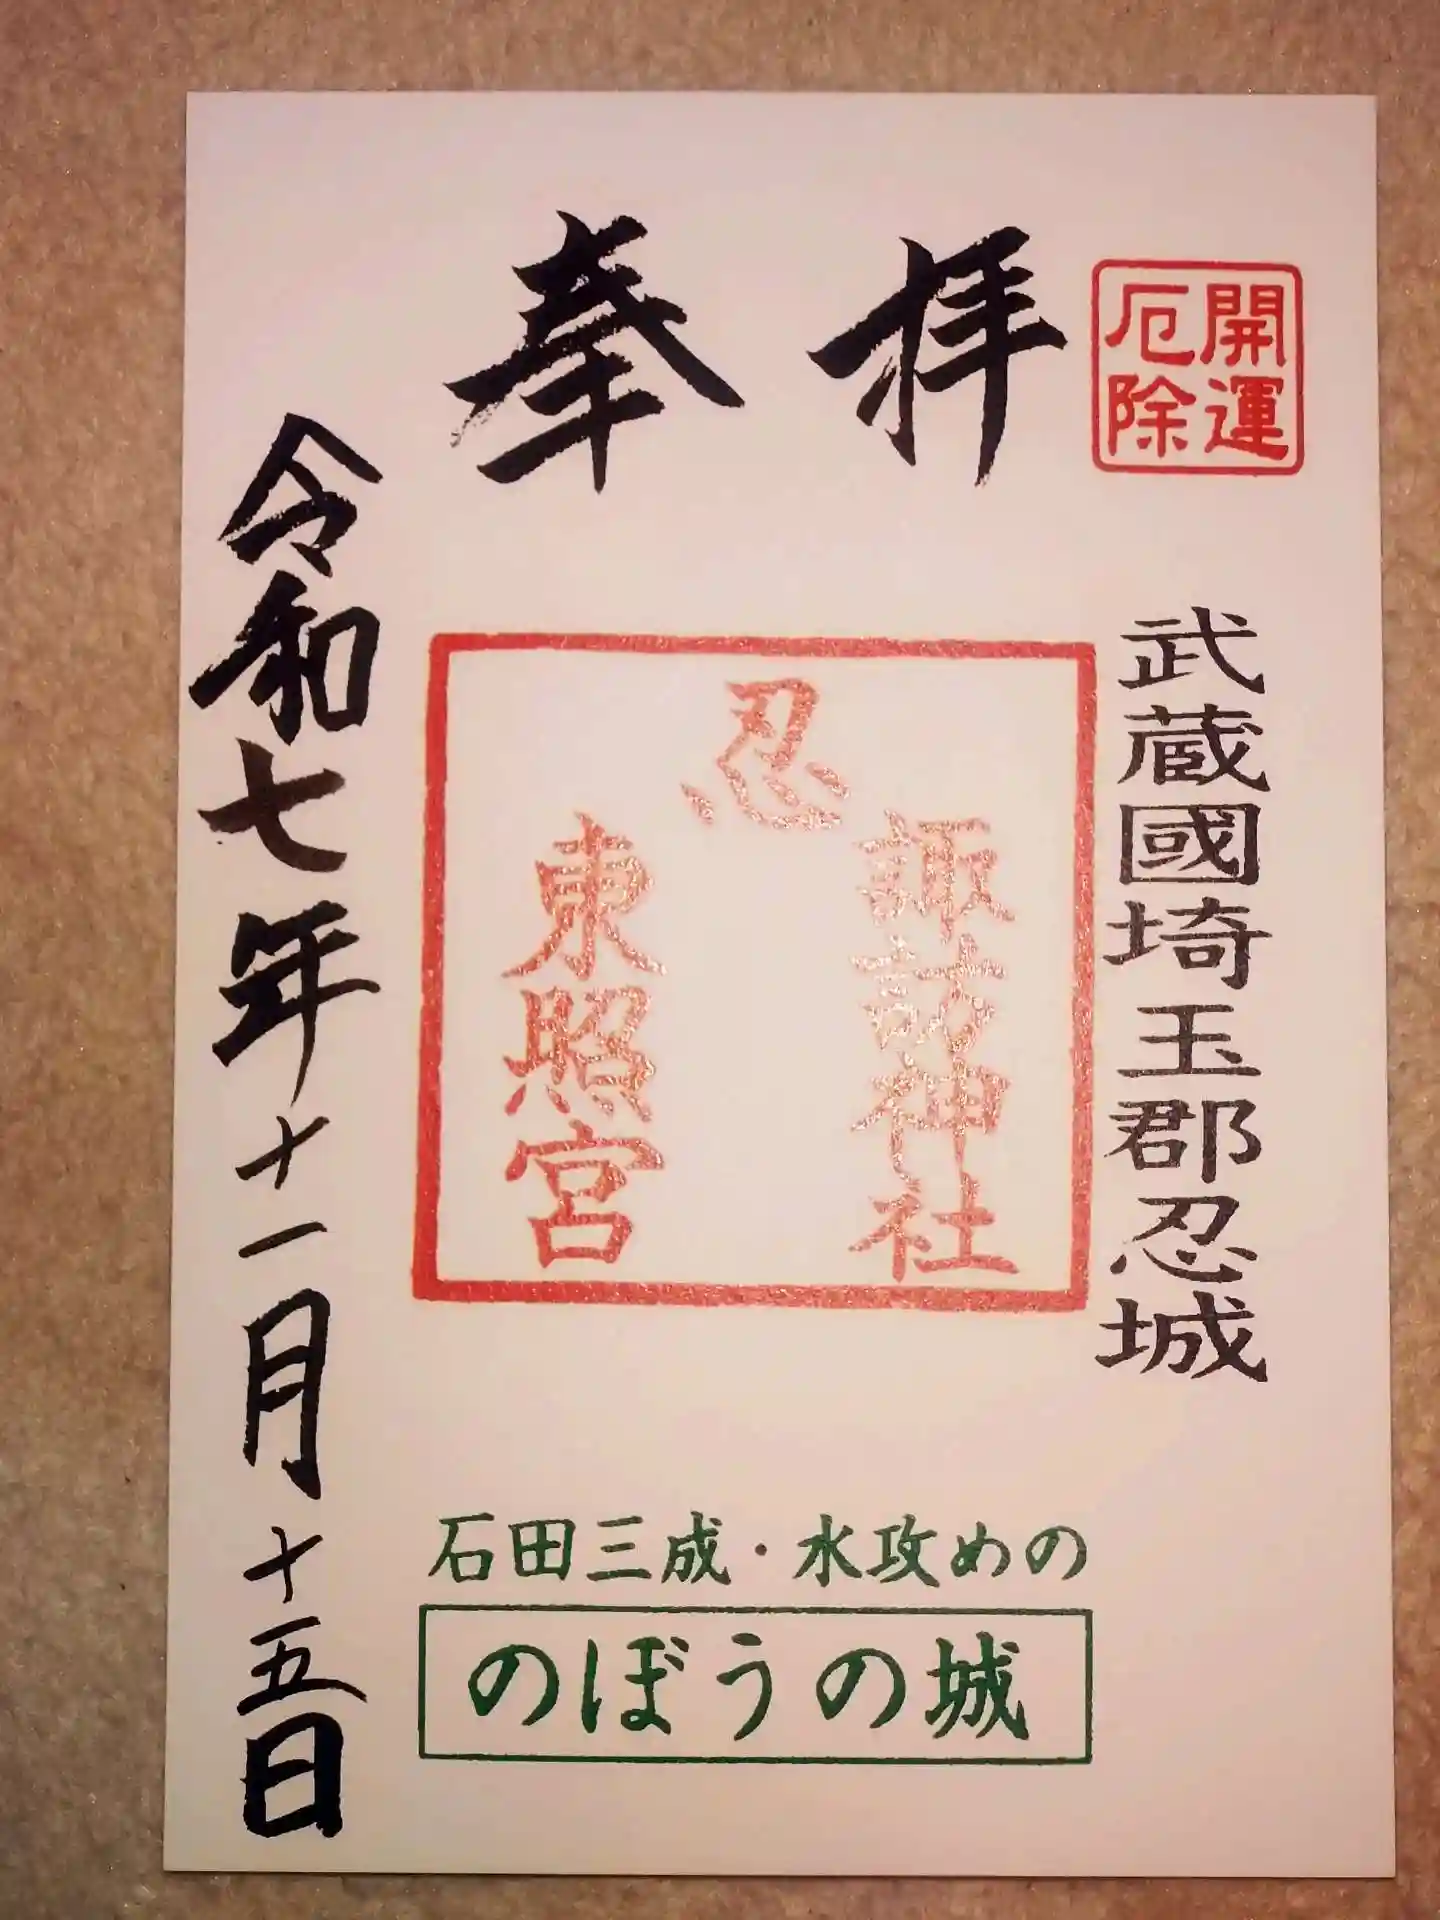 開運
厄除
奉拝
武蔵國埼玉郡忍城
忍
諏訪神社
東照宮
令和七年十一月十五日
石田三成・水攻めの
のぼうの城